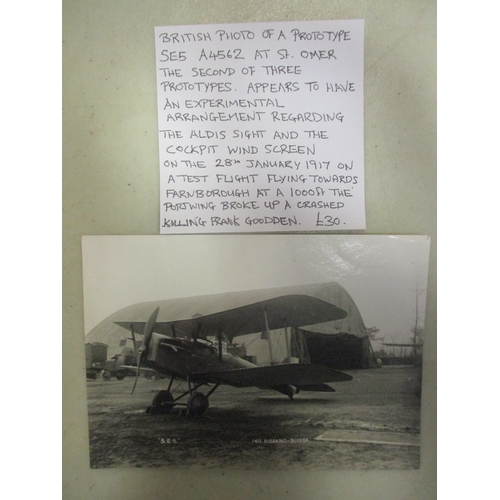 BRITISH PHOTO OF A PROTOTYPE
SE5 A4562 AT St. OMER
THE SECOND OF THREE
PROTOTYPES. APPEARS TO HAVE
AN EXPERIMENTAL
ARRANGEMENT REGARDING
THE ALDIS SIGHT AND THE
COCKPIT WIND SCREEN
ON THE 28TH JANUARY 1917 ON
A TEST FLIGHT FLYING TOWARDS
FARNBOROUGH AT A 1000ft THE
PORTWING BROKE UP A CRASHED
KILLING FRANK GOODDEN. £30.
"S.E.5." 140. HISPANO-SUIZA